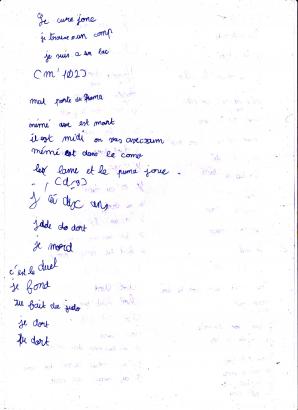 Je cure jone
je trouve un comp
je suis a sa bac
(m'102)
mal porte de Roma
mémé ave est mort
il est midi on vas avecsam
mémé est dans le coma
lame et le puma joue.
J ai dix ans
dort
je mord
c'est le duel
je fond
fait du judo
je dort
dort